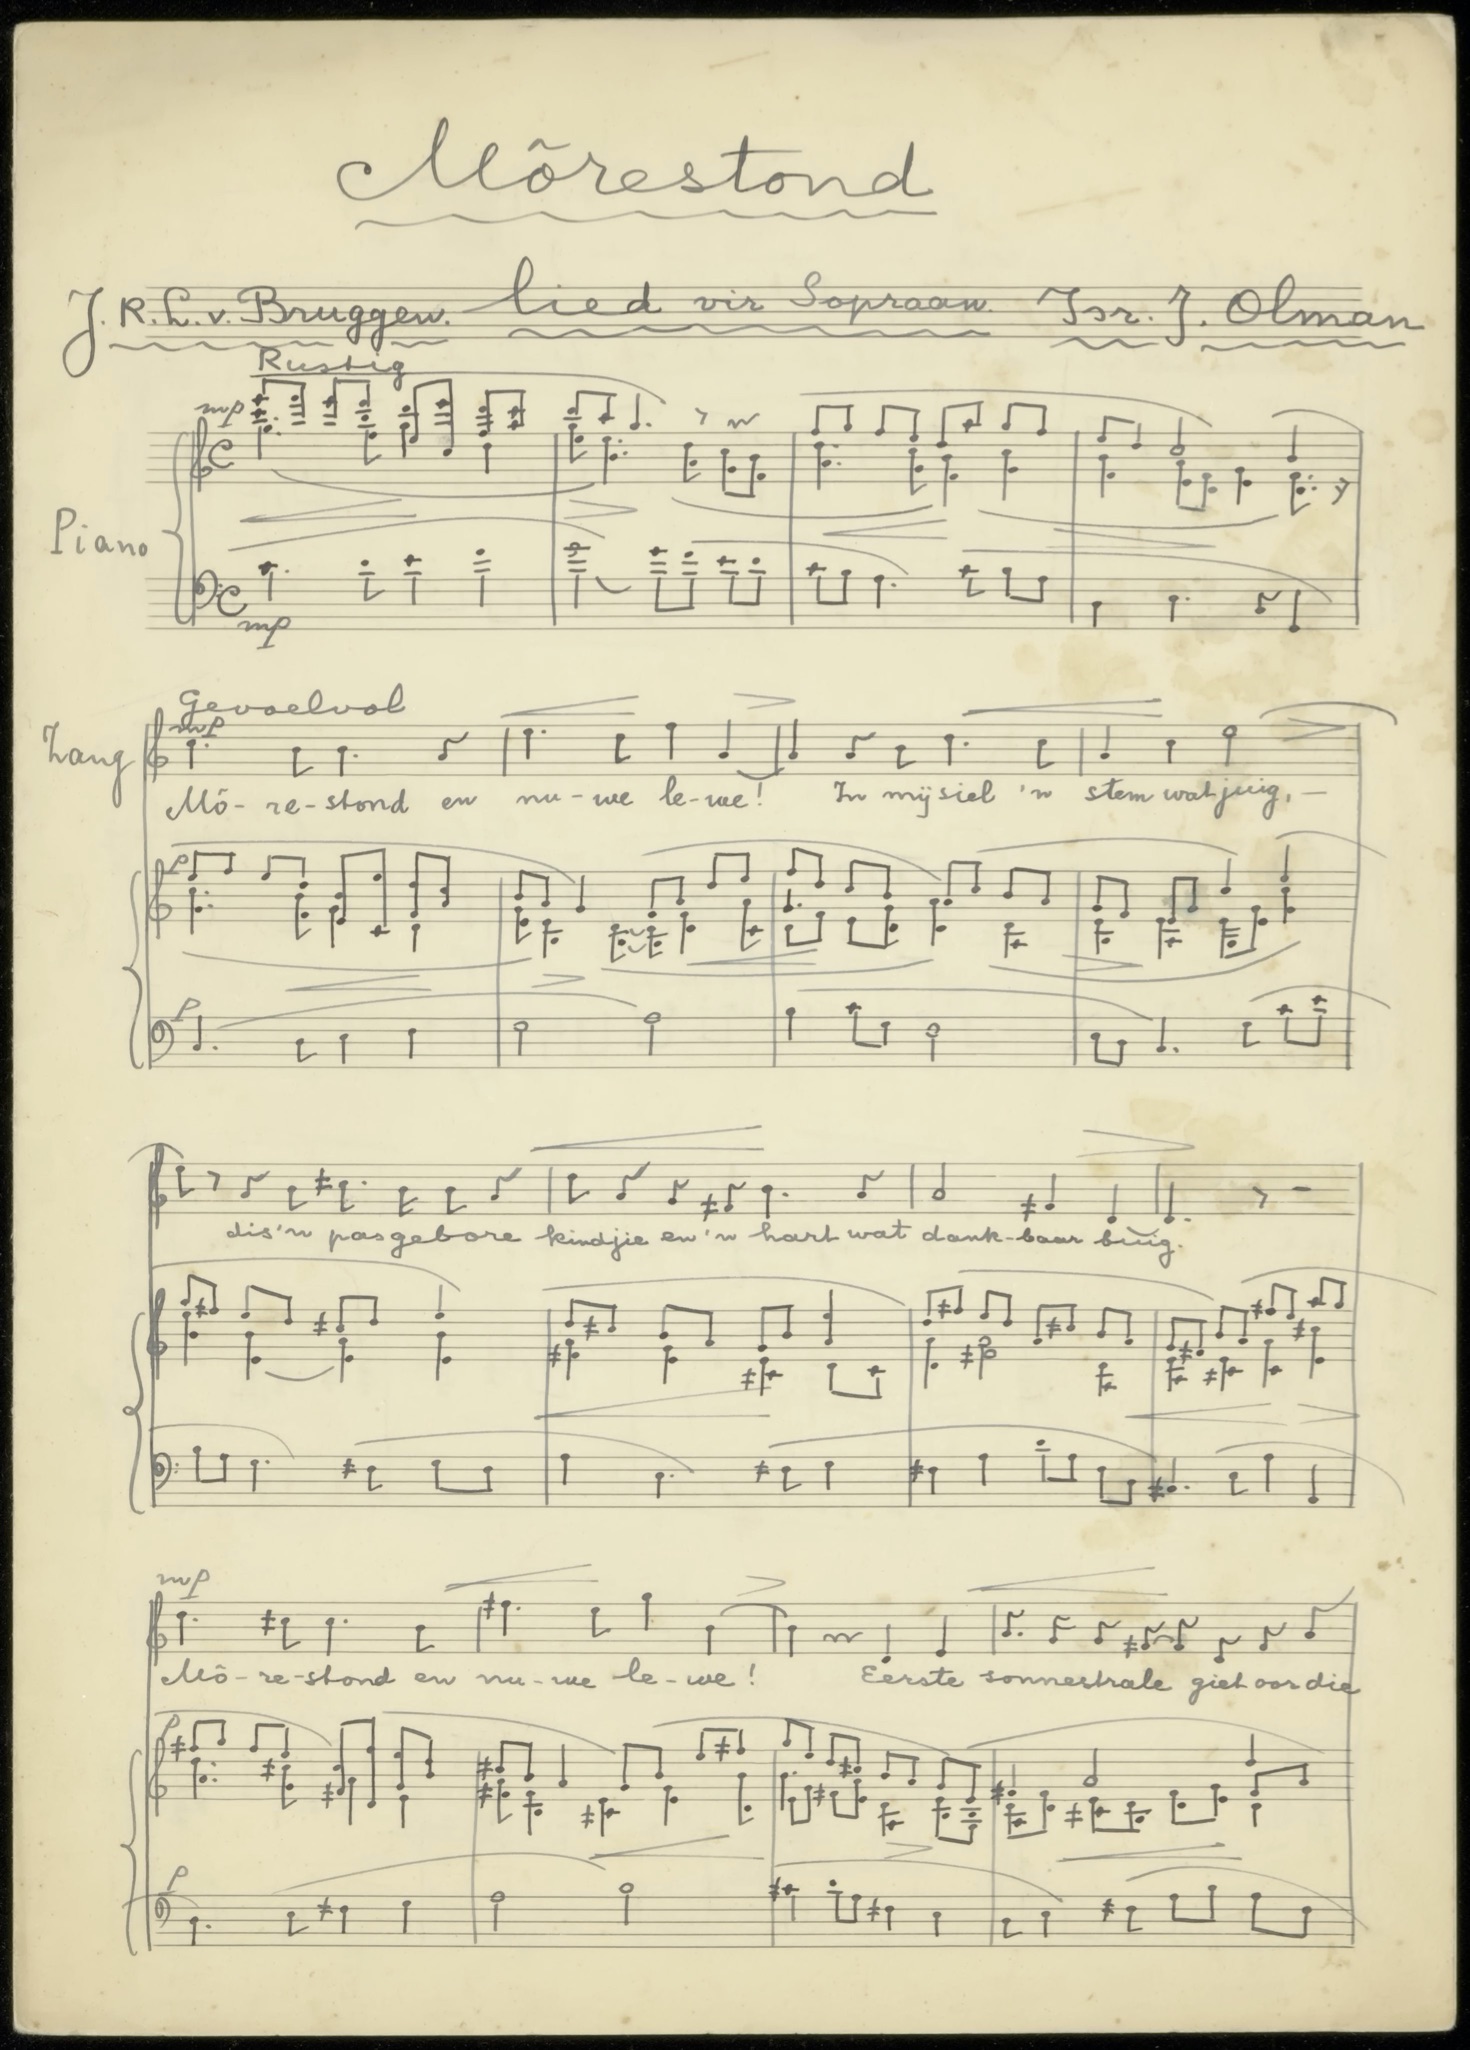 Môrestond
J. R. L. v. Bruggen. lied vir Sopraan. Isr. J. Olman
Rustig
mp
Piano
mp
Gevoelvol
mp
Zang
Mô- re-stond en nu-we le-we! In mÿ siel 'n stem wat juig, —
p
p
dis 'n pasgebore kindjie en 'n hart wat dank-baar buig.
mp
Mô- re-stond en nu-we le-we! Eerste sonnestrale giet oor die
p
p